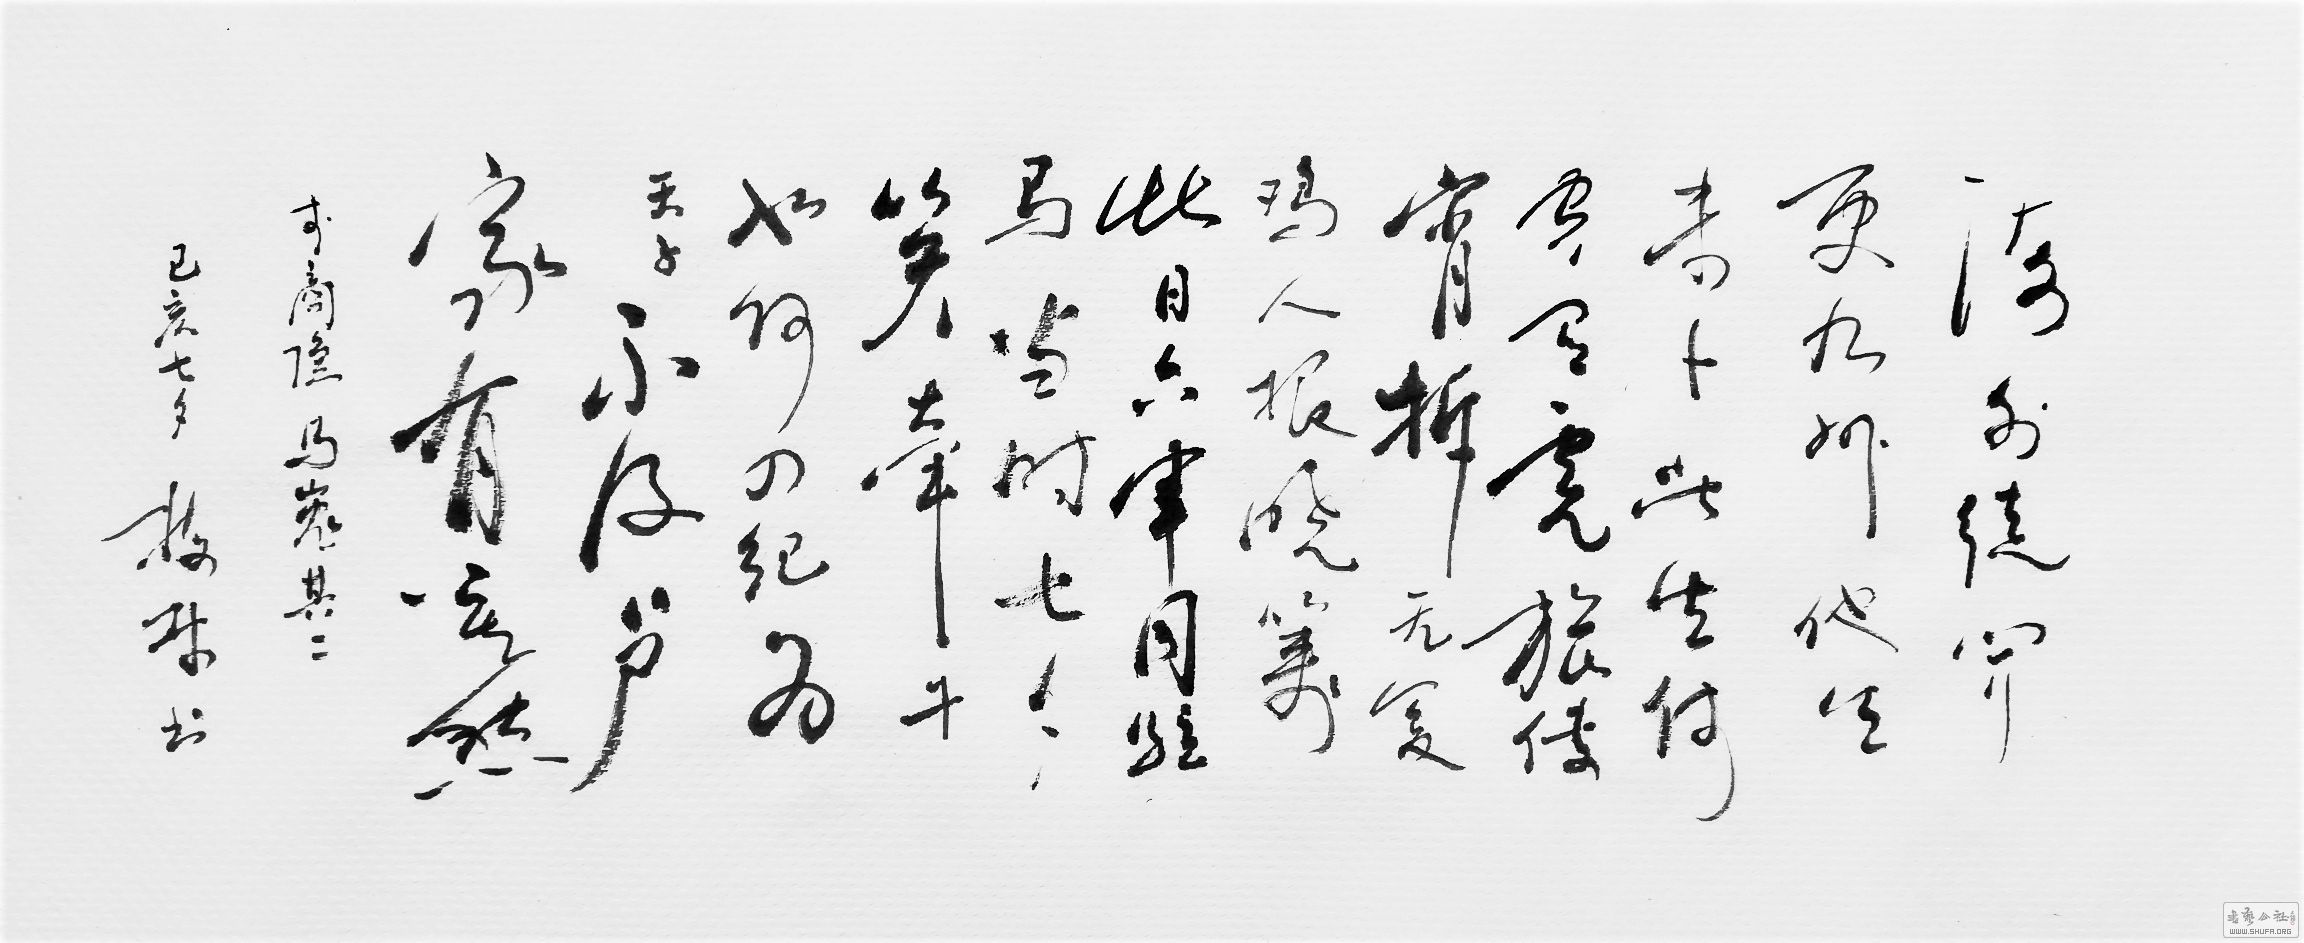 海外徒闻
更九州他生
未卜此生休
空闻虎旅传
宵柝无复
鸡人报晓筹
此日六军同驻
马当时七夕
笑牵牛
如何四纪为
天子不及卢
家有莫愁
李商隐马嵬其二
己亥七夕 书
WWW.SHUFA.ORG